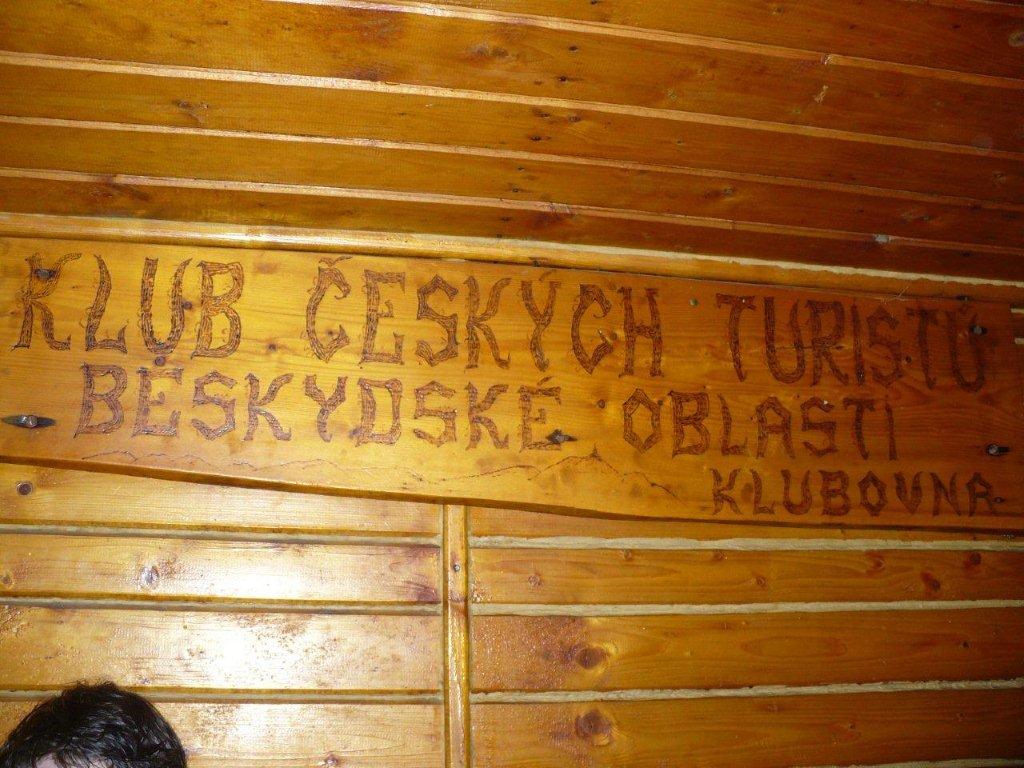 KLUB ČESKÝCH TURISTŮ
BESKYDSKÉ OBLASTI
KLUBOVNA